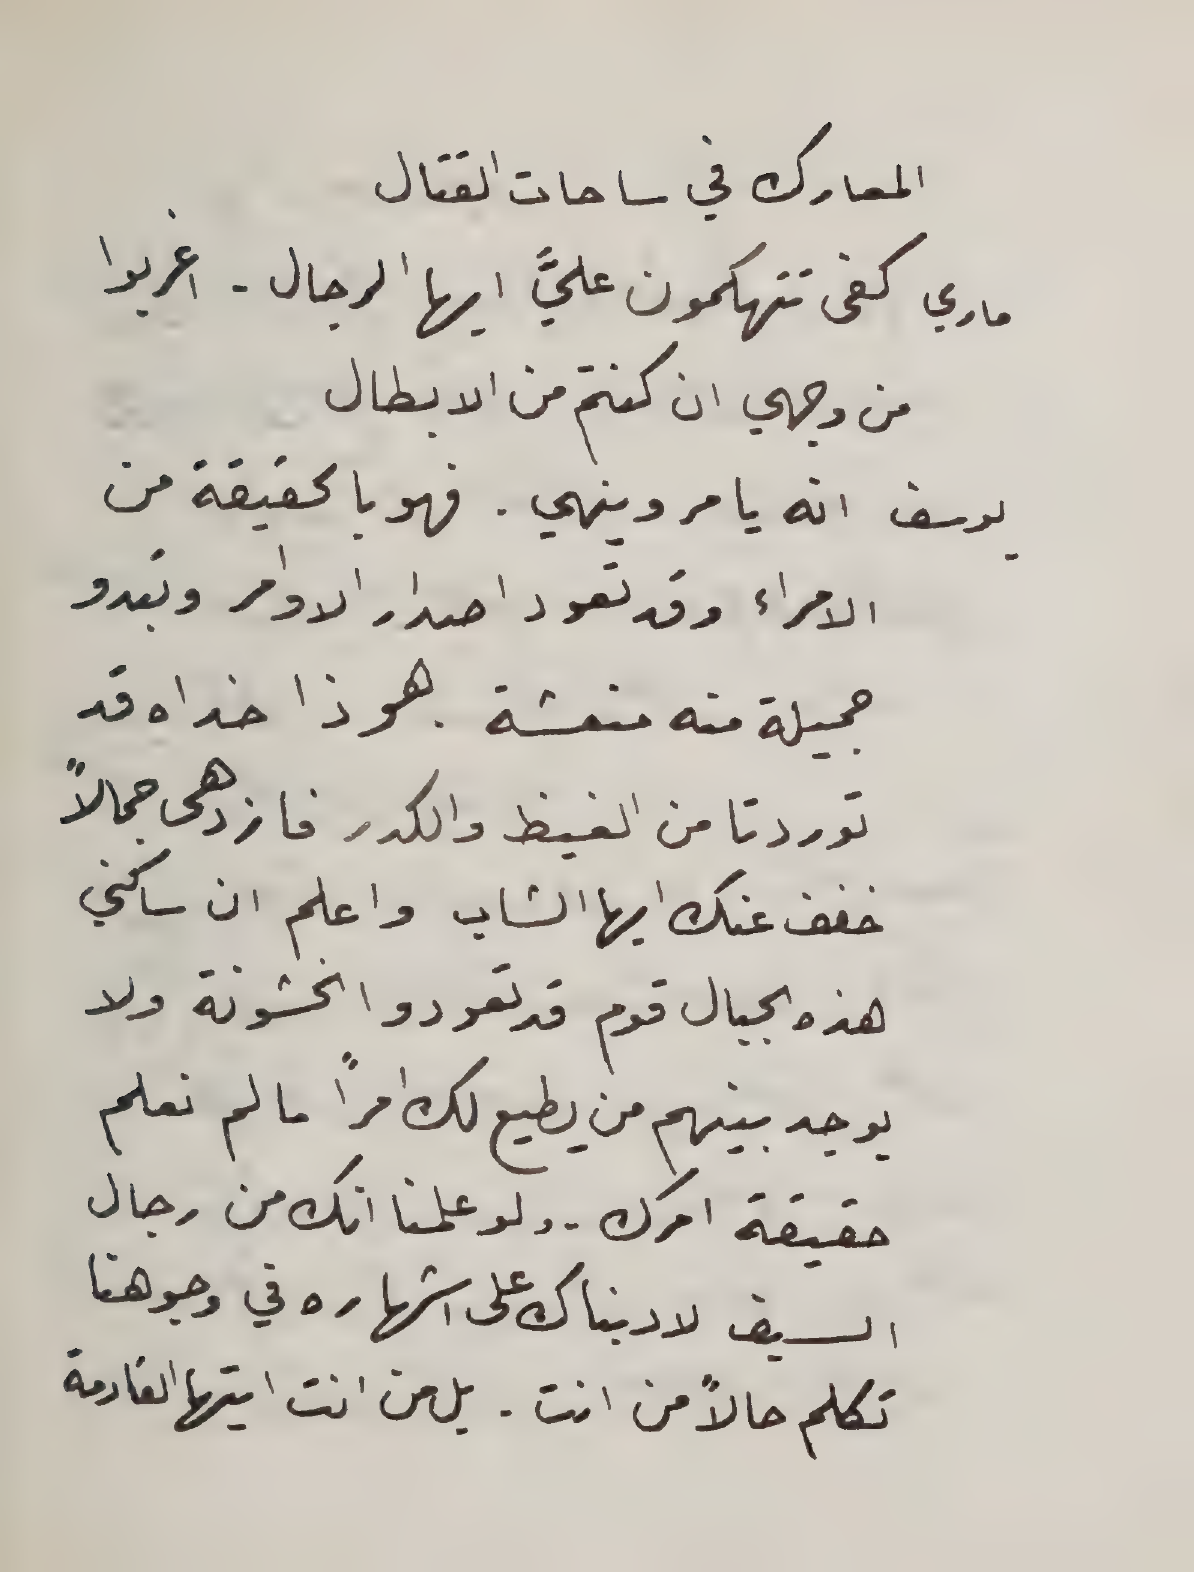 المعارك في ساحات القتال
ماري كفى تتهكمون عليَّ ايها الرجال - اغربوا
من وجهي ان كنتم من الابطال
يوسف انه يامر وينهي . فهو بالحقيقة من
الامراء وقد تعود اصدار الاوامر وتبدو
جميلة منه منعشة . هوذا خداه قد
توردتا من الغيظ والكدر فازدهى جمالاً
خفف عنك ايها الشاب واعلم ان ساكني
هذه الجبال قوم قد تعودوا الخشونة ولا
يوجد بينهم من يطيع لك امراً ما لم نعلم
حقيقة امرك - . ولو علمنا انك من رجال
السيف لادبناك على اشهاره في وجوهنا
تكلم حالاً من انت . بل من انت ايتها القادمة